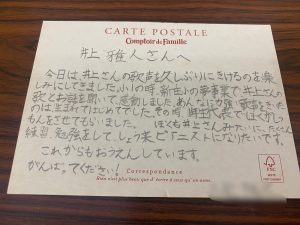 CARTE POSTALE
Comptoir de Famille
井上 雅人さんへ
今日は井上さんの歌声を久しぶりにきけるのを楽
しみにしてきました。小1の時、新庄小の音楽会で井上さんの
歌とお話を聞いて感動しました。あんなに力強い歌声をきいた
のは生まれてはじめてでした。その時、1年生代表でぼくがしつ
もんをさせてもらいました。ぼくも井上さんみたいに、たくさん
練習、勉強をして、しょう来ピアニストになりたいです。
これからもおうえんしています。
がんばってください!
Correspondance
Rien n'est plus beau que d'écrire à ceux qu'on aime.
FSC